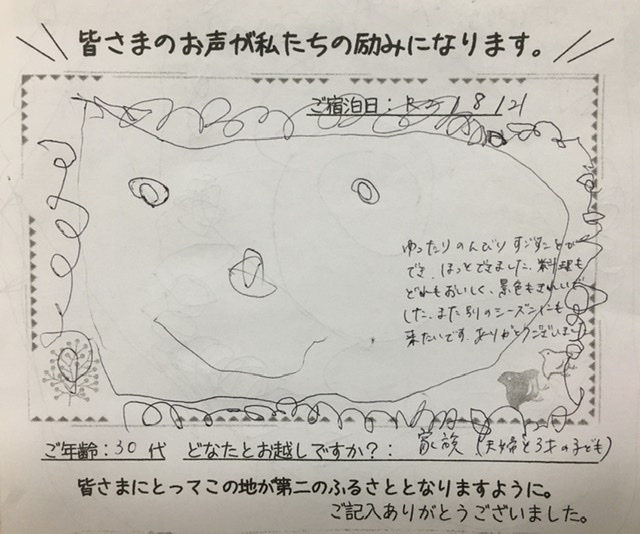 皆さまのお声が私たちの励みになります。
ご宿泊日：R5 / 8 / 21
ゆったりのんびりすごすことが
でき、ほっとできました。料理も
どれもおいしく、景色もきれいで
した。また別のシーズンにも
来たいです。ありがとうございました
ご年齢：30 代 どなたとお越しですか？： 家族 (夫婦と3才の子ども)
皆さまにとってこの地が第二のふるさととなりますように。
ご記入ありがとうございました。